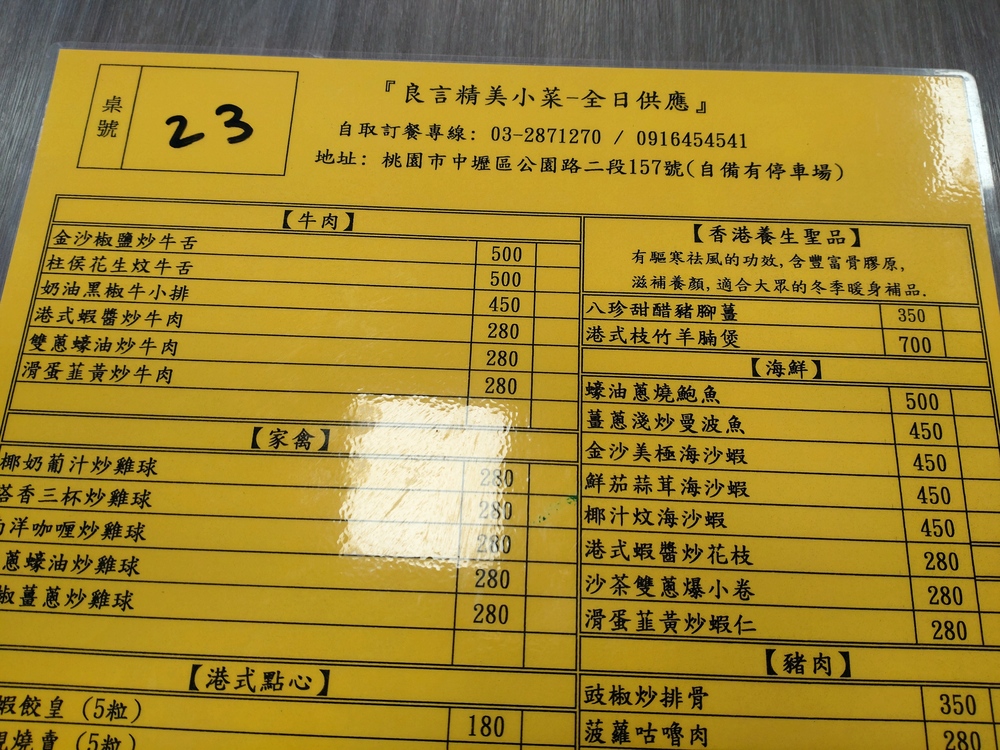 桌號
23
『良言精美小菜-全日供應』
自取訂餐專線: 03-2871270 / 0916454541
地址: 桃園市中壢區公園路二段157號(自備有停車場)
【牛肉】
金沙椒鹽炒牛舌 500
柱侯花生炆牛舌 500
奶油黑椒牛小排 450
港式蝦醬炒牛肉 280
雙蔥蠔油炒牛肉 280
滑蛋韮黃炒牛肉 280
【家禽】
椰奶葡汁炒雞球 280
塔香三杯炒雞球 280
洋咖喱炒雞球 280
蔥蠔油炒雞球 280
椒薑蔥炒雞球 280
【港式點心】
蝦餃皇 (5粒) 180
燒賣 (5粒)
【香港養生聖品】
有驅寒祛風的功效,含豐富骨膠原,
滋補養顏,適合大眾的冬季暖身補品.
八珍甜醋豬腳薑 350
港式枝竹羊腩煲 700
【海鮮】
蠔油蔥燒鮑魚 500
薑蔥淺炒曼波魚 450
金沙美極海沙蝦 450
鮮茄蒜茸海沙蝦 450
椰汁炆海沙蝦 450
港式蝦醬炒花枝 280
沙茶雙蔥爆小卷 280
滑蛋韮黃炒蝦仁 280
【豬肉】
豉椒炒排骨 350
菠蘿咕嚕肉 280